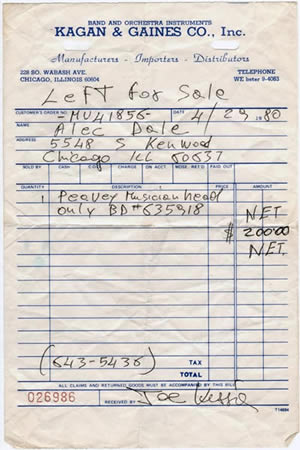 BAND AND ORCHESTRA INSTRUMENTS
KAGAN & GAINES CO., Inc.
Manufacturers - Importers - Distributors
228 SO. WABASH AVE. TELEPHONE
CHICAGO, ILLINOIS 60604 WE bster 9-4083
Left for Sale
CUSTOMER'S ORDER NO. MU41856 DATE 4/29 1980
NAME Alec Dale
ADDRESS 5548 S Kenwood
Chicago ILL 60637
SOLD BY CASH C.O.D. CHARGE ON ACCT. MDSE. RET'D PAID OUT
QUANTITY DESCRIPTION PRICE AMOUNT
1 Peavey Musician head
only BD# 635918 NET
$ 200.00
NET
(643-5436) TAX
TOTAL
ALL CLAIMS AND RETURNED GOODS MUST BE ACCOMPANIED BY THIS BILL
026986 RECEIVED BY Joe